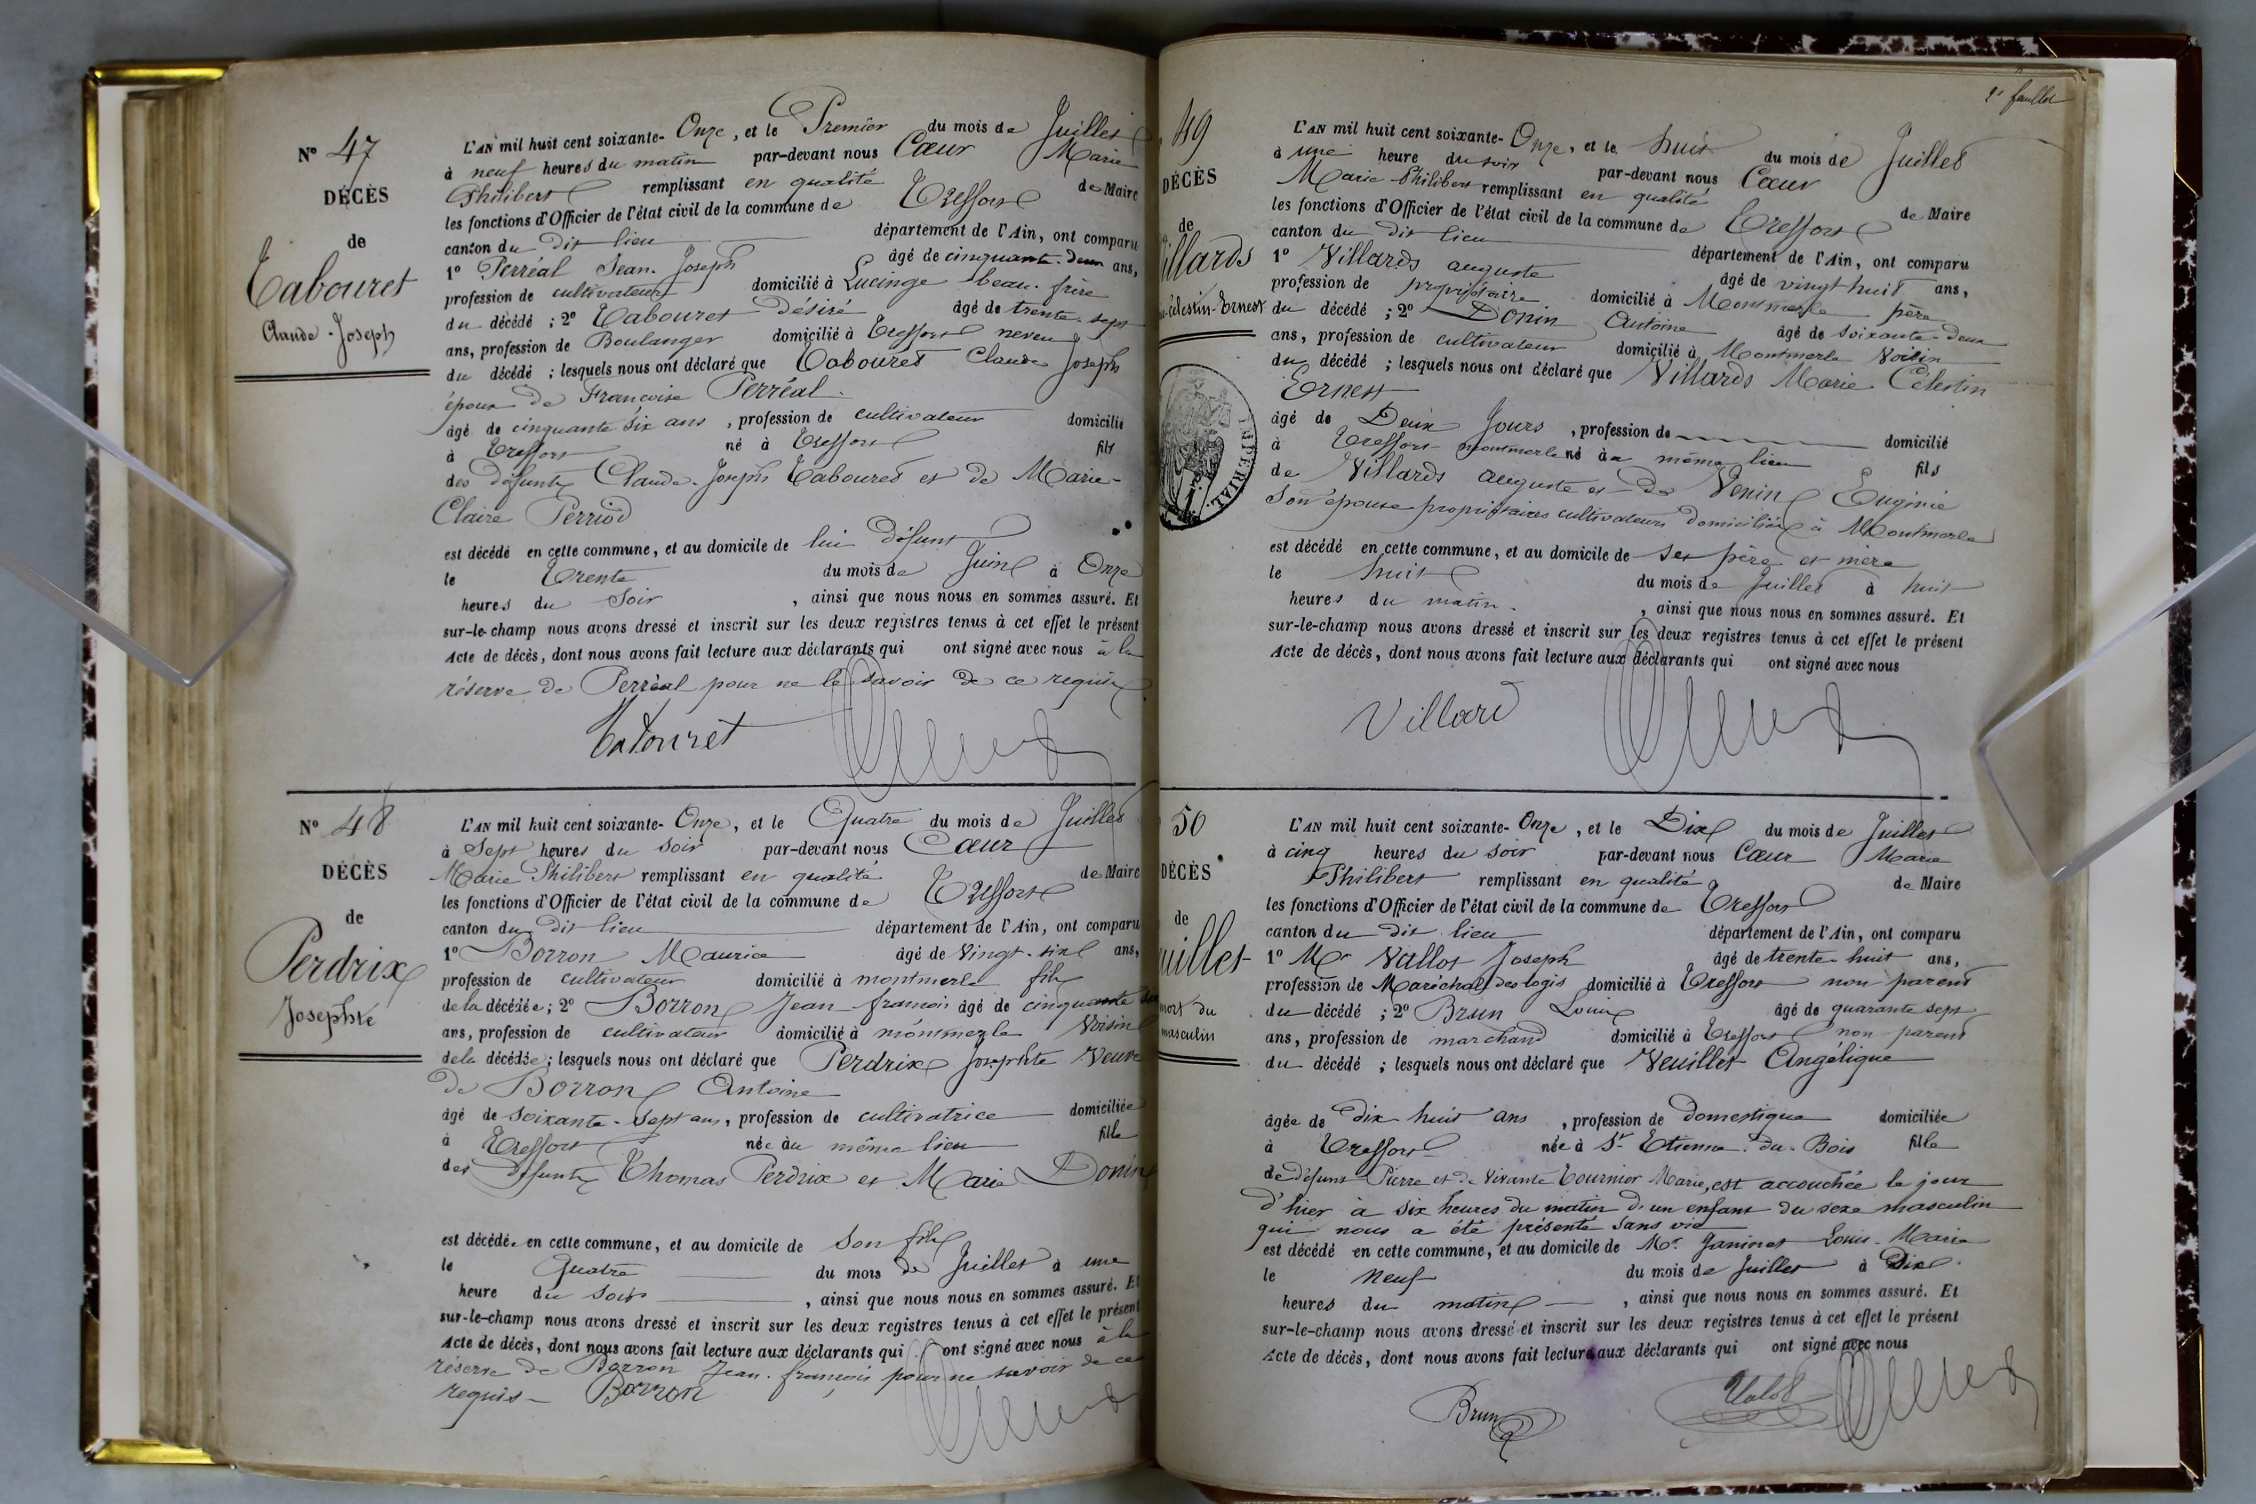 N° 47
DÉCÈS
de
Tabouret
Claude-Joseph
L'AN mil huit cent soixante-Onze, et le Premier du mois de Juillet
à neuf heures du matin par-devant nous Cœur Marie
Philibert remplissant en qualité de Maire
les fonctions d'Officier de l'état civil de la commune de Treffort
canton du dit lieu département de l'Ain, ont comparu
1° Perréal Jean-Joseph âgé de cinquante-deux ans,
profession de cultivateur domicilié à Lucinge beau-frère
du décédé ; 2° Tabouret Désiré âgé de trente-sept
ans, profession de Boulanger domicilié à Treffort neveu
du décédé ; lesquels nous ont déclaré que Tabouret Claude Joseph
époux de Françoise Perréal
âgé de cinquante six ans, profession de cultivateur domicilié
à Treffort né à Treffort fils
des défunts Claude-Joseph Tabouret et de Marie-
Claire Perriod
est décédé en cette commune, et au domicile de lui défunt
le Trente du mois de Juin à Onze
heures du soir, ainsi que nous nous en sommes assuré. Et
sur-le-champ nous avons dressé et inscrit sur les deux registres tenus à cet effet le présent
Acte de décès, dont nous avons fait lecture aux déclarants qui ont signé avec nous à la
réserve de Perréal pour ne le savoir de ce requis
Tabouret
N° 48
DÉCÈS
de
Perdrix
Josephte
L'AN mil huit cent soixante-Onze, et le Quatre du mois de Juillet
à Sept heures du soir par-devant nous Cœur
Marie Philibert remplissant en qualité de Maire
les fonctions d'Officier de l'état civil de la commune de Treffort
canton du dit lieu département de l'Ain, ont comparu
1° Borron Maurice âgé de vingt-six ans,
profession de cultivateur domicilié à montmerle fils
de la décédée ; 2° Borron Jean-françois âgé de cinquante
ans, profession de cultivateur domicilié à montmerle Voisin
de la décédée ; lesquels nous ont déclaré que Perdrix Josephte Veuve
de Borron Antoine
âgé de soixante-sept ans, profession de cultivatrice domiciliée
à Treffort née au même lieu fille
des défunts Thomas Perdrix et Marie Donin
est décédée en cette commune, et au domicile de son fils
le Quatre du mois de Juillet à une
heure du soir, ainsi que nous nous en sommes assuré. Et
sur-le-champ nous avons dressé et inscrit sur les deux registres tenus à cet effet le présent
Acte de décès, dont nous avons fait lecture aux déclarants qui ont signé avec nous à la
réserve de Borron Jean-françois pour ne savoir de ce
requis- Borron
2e feuillet
49
DÉCÈS
de
illards
célestin-Ernest
IMPERIAL
L'AN mil huit cent soixante-Onze, et le huit du mois de Juillet
à une heure du soir par-devant nous Cœur
Marie Philibert remplissant en qualité de Maire
les fonctions d'Officier de l'état civil de la commune de Treffort
canton du dit lieu département de l'Ain, ont comparu
1° Villards auguste âgé de vingt huit ans,
profession de propriétaire domicilié à Montmerle père
du décédé ; 2° Donin Antoine âgé de soixante-deux
ans, profession de cultivateur domicilié à Montmerle Voisin
du décédé ; lesquels nous ont déclaré que Villards Marie Célestin
Ernest
âgé de Deux Jours, profession de domicilié
à Treffort montmerle né au même lieu fils
de Villards auguste et de Venin Eugénie
son épouse propriétaires cultivateurs domiciliés à Montmerle
est décédé en cette commune, et au domicile de ses père et mère
le huit du mois de Juillet à huit
heures du matin, ainsi que nous nous en sommes assuré. Et
sur-le-champ nous avons dressé et inscrit sur les deux registres tenus à cet effet le présent
Acte de décès, dont nous avons fait lecture aux déclarants qui ont signé avec nous
Villard
50
DÉCÈS
de
uillet
mort du
masculin
L'AN mil huit cent soixante-Onze, et le Dix du mois de Juillet
à cinq heures du soir par-devant nous Cœur Marie
Philibert remplissant en qualité de Maire
les fonctions d'Officier de l'état civil de la commune de Treffort
canton du dit lieu département de l'Ain, ont comparu
1° Mr Vallot Joseph âgé de trente-huit ans,
profession de Maréchal des logis domicilié à Treffort non parent
du décédé ; 2° Brun Louis âgé de quarante sept
ans, profession de marchand domicilié à Treffort non parent
du décédé ; lesquels nous ont déclaré que Veuillet Angélique
âgée de dix huit ans, profession de domestique domiciliée
à Treffort née à St Etienne-du-Bois fille
de défunt Pierre et de vivante Tournier Marie, est accouchée le jour
d'hier à six heures du matin d'un enfant du sexe masculin
qui nous a été présenté sans vie
est décédé en cette commune, et au domicile de Mr. Janinet Louis-Marie
le neuf du mois de Juillet à Dix
heures du matin, ainsi que nous nous en sommes assuré. Et
sur-le-champ nous avons dressé et inscrit sur les deux registres tenus à cet effet le présent
Acte de décès, dont nous avons fait lecture aux déclarants qui ont signé avec nous
Brun Valot